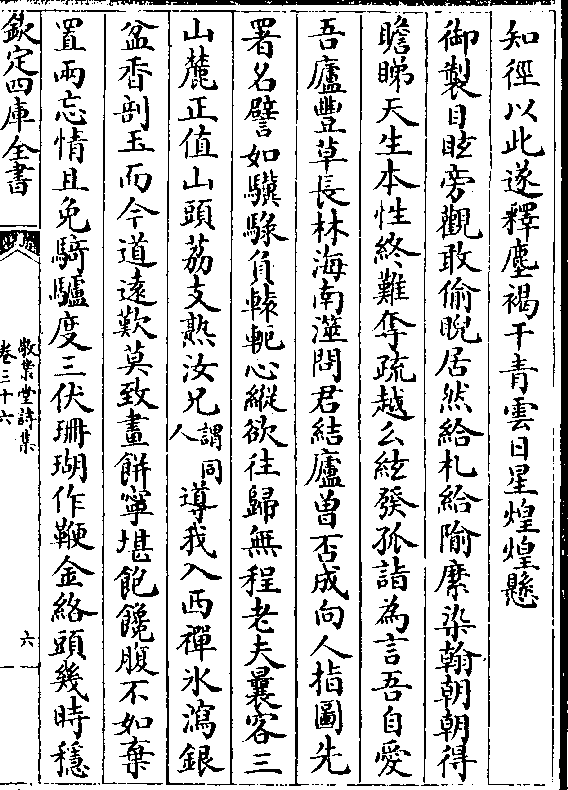 知徑以此遂釋塵褐干青雲日星煌煌懸
御製目眩旁觀敢偷睨居然給札給隃麋染翰朝朝得
瞻睇天生本性終難奪疏越么絃發孤詣為言吾自愛
吾廬豐草長林海南澨問君結廬曾否成向人指圖先
署名譬如驥騄負轅軛心縱欲往歸無程老夫曩客三
山麓正值山頭荔支熟汝兄謂同人導我入西禪氷瀉銀
盆香剖玉而今道遠歎莫致畫餅寧堪飽饞腹不如棄
置兩忘情且免騎驢度三伏珊瑚作鞭金絡頭幾時穩
欽定四庫全書
敬業堂詩集
卷三十六
六